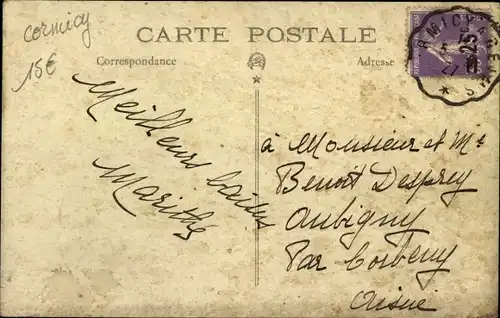 Cormicy
15€
CARTE POSTALE
Correspondance
Adresse
25
27
Meilleurs baisers
Marithé
à Monsieur et Me
Benoit Desprey
Aubigny
Par Corbeny
Aisne